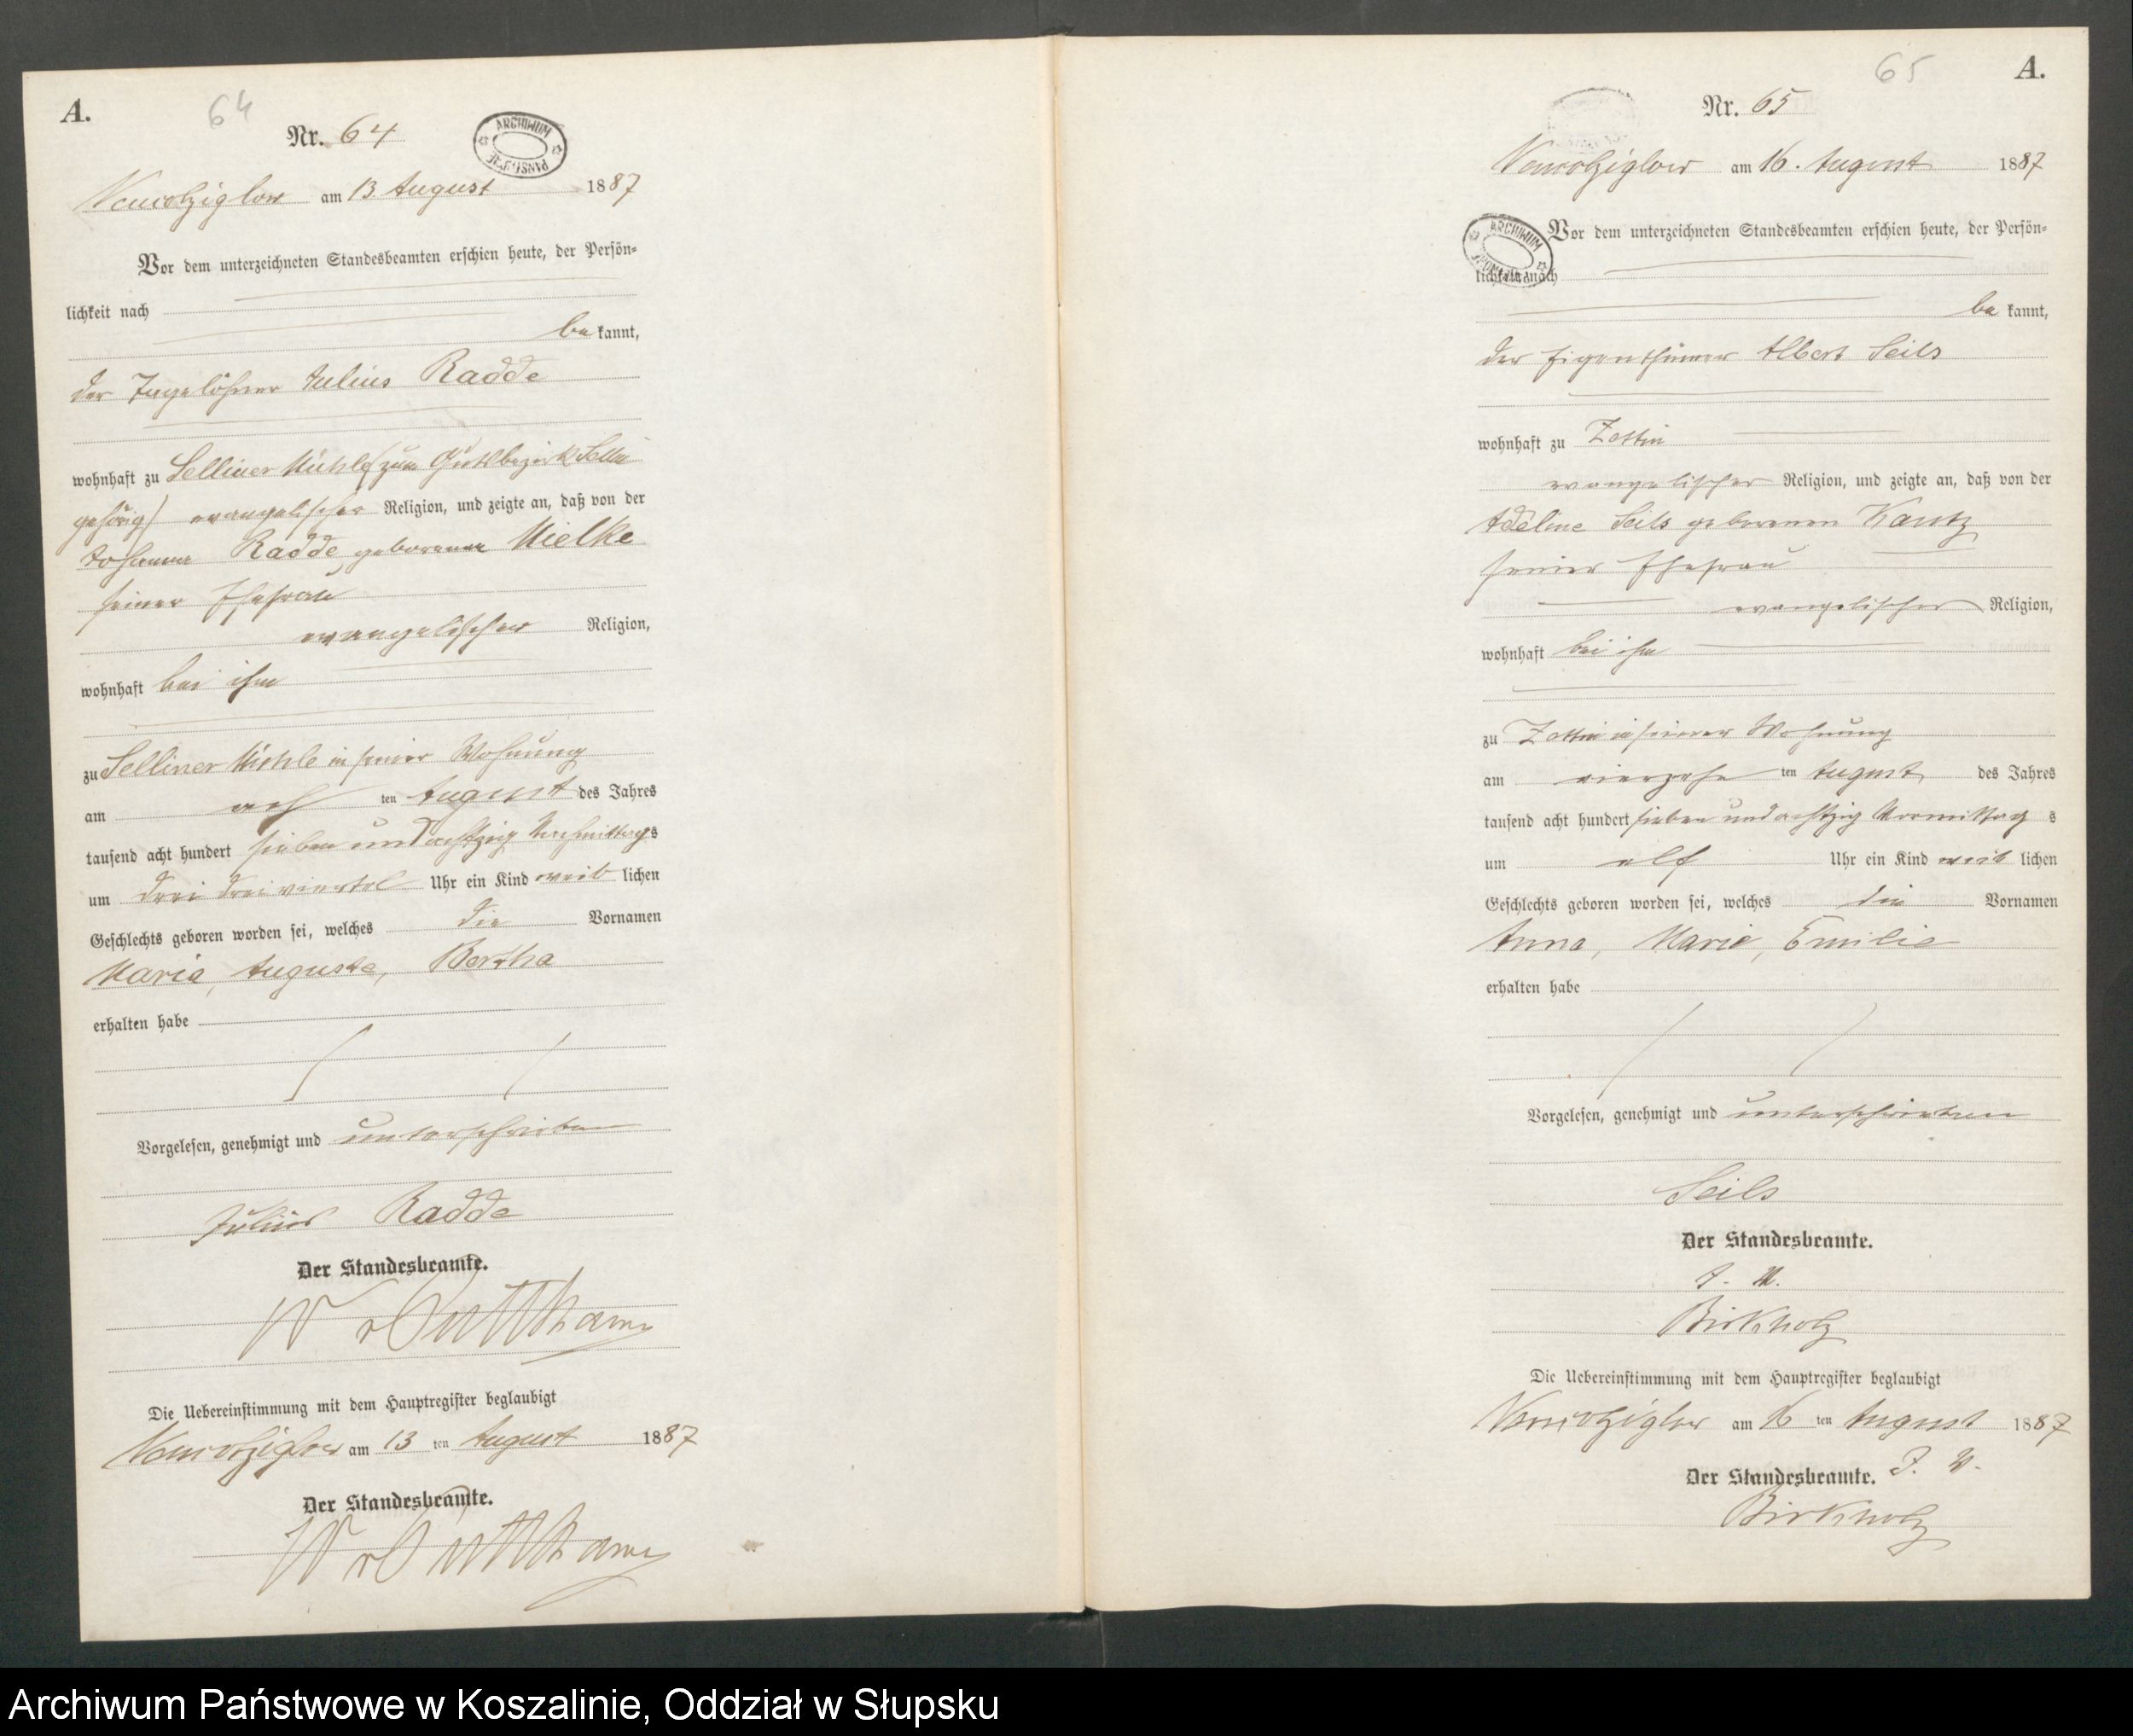 A.
64
Nr. 64
ARCHIWUM PAŃSTWOWE
am 13. August 1887
Vor dem unterzeichneten Standesbeamten erschien heute, der Persön-
lichkeit nach
be kannt,
der Tagelöhner Julius Radde
wohnhaft zu Selliner Mühle (zum Gutsbezirk Sellin
gehörig) evangelischer Religion, und zeigte an, daß von der
Johanna Radde geborenen Mielke
seiner Ehefrau
evangelischer Religion,
wohnhaft bei ihm
zu Selliner Mühle in seiner Wohnung
am ach ten August des Jahres
tausend acht hundert sieben und achtzig Nachmittags
um drei dreiviertel Uhr ein Kind weib lichen
Geschlechts geboren worden sei, welches die Vornamen
Maria, Auguste, Bertha
erhalten habe
Vorgelesen, genehmigt und unterschrieben
Julius Radde
Der Standesbeamte.
W v Puttkamer
Die Uebereinstimmung mit dem Hauptregister beglaubigt
am 13 ten August 1887
Der Standesbeamte.
W v Puttkamer
65
A.
Nr. 65
am 16. August 1887
ARCHIWUM
Vor dem unterzeichneten Standesbeamten erschien heute, der Persön-
lichkeit nach
be kannt,
der Eigenthümer Albert Seils
wohnhaft zu Zettin
evangelischer Religion, und zeigte an, daß von der
Adeline Seils geborenen Kautz
seiner Ehefrau
evangelischer Religion,
wohnhaft bei ihm
zu Zettin in seiner Wohnung
am vierzehn ten August des Jahres
tausend acht hundert sieben und achtzig Vormittag s
um elf Uhr ein Kind weib lichen
Geschlechts geboren worden sei, welches die Vornamen
Anna, Marie, Emilie
erhalten habe
Vorgelesen, genehmigt und unterschrieben
Seils
Der Standesbeamte.
J. V.
Birkholz
Die Uebereinstimmung mit dem Hauptregister beglaubigt
am 16 ten August 1887
Der Standesbeamte. J. V.
Birkholz
Archiwum Państwowe w Koszalinie, Oddział w Słupsku